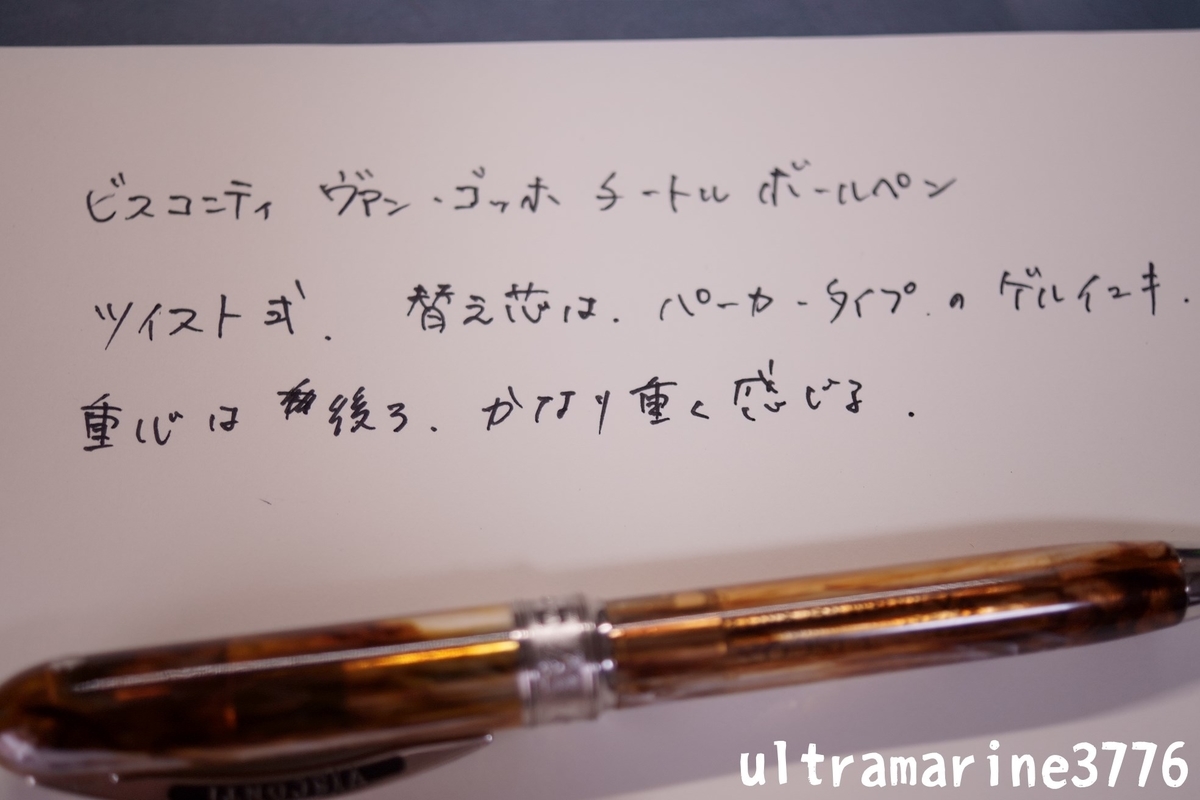 ビスコンティ ヴァン・ゴッホ チートル ボールペン
ツイスト式. 替え芯は. パーカータイプ.の ゲルインキ.
重心は 後ろ. かなり重く感じる.
VISCONTI
ultramarine3776